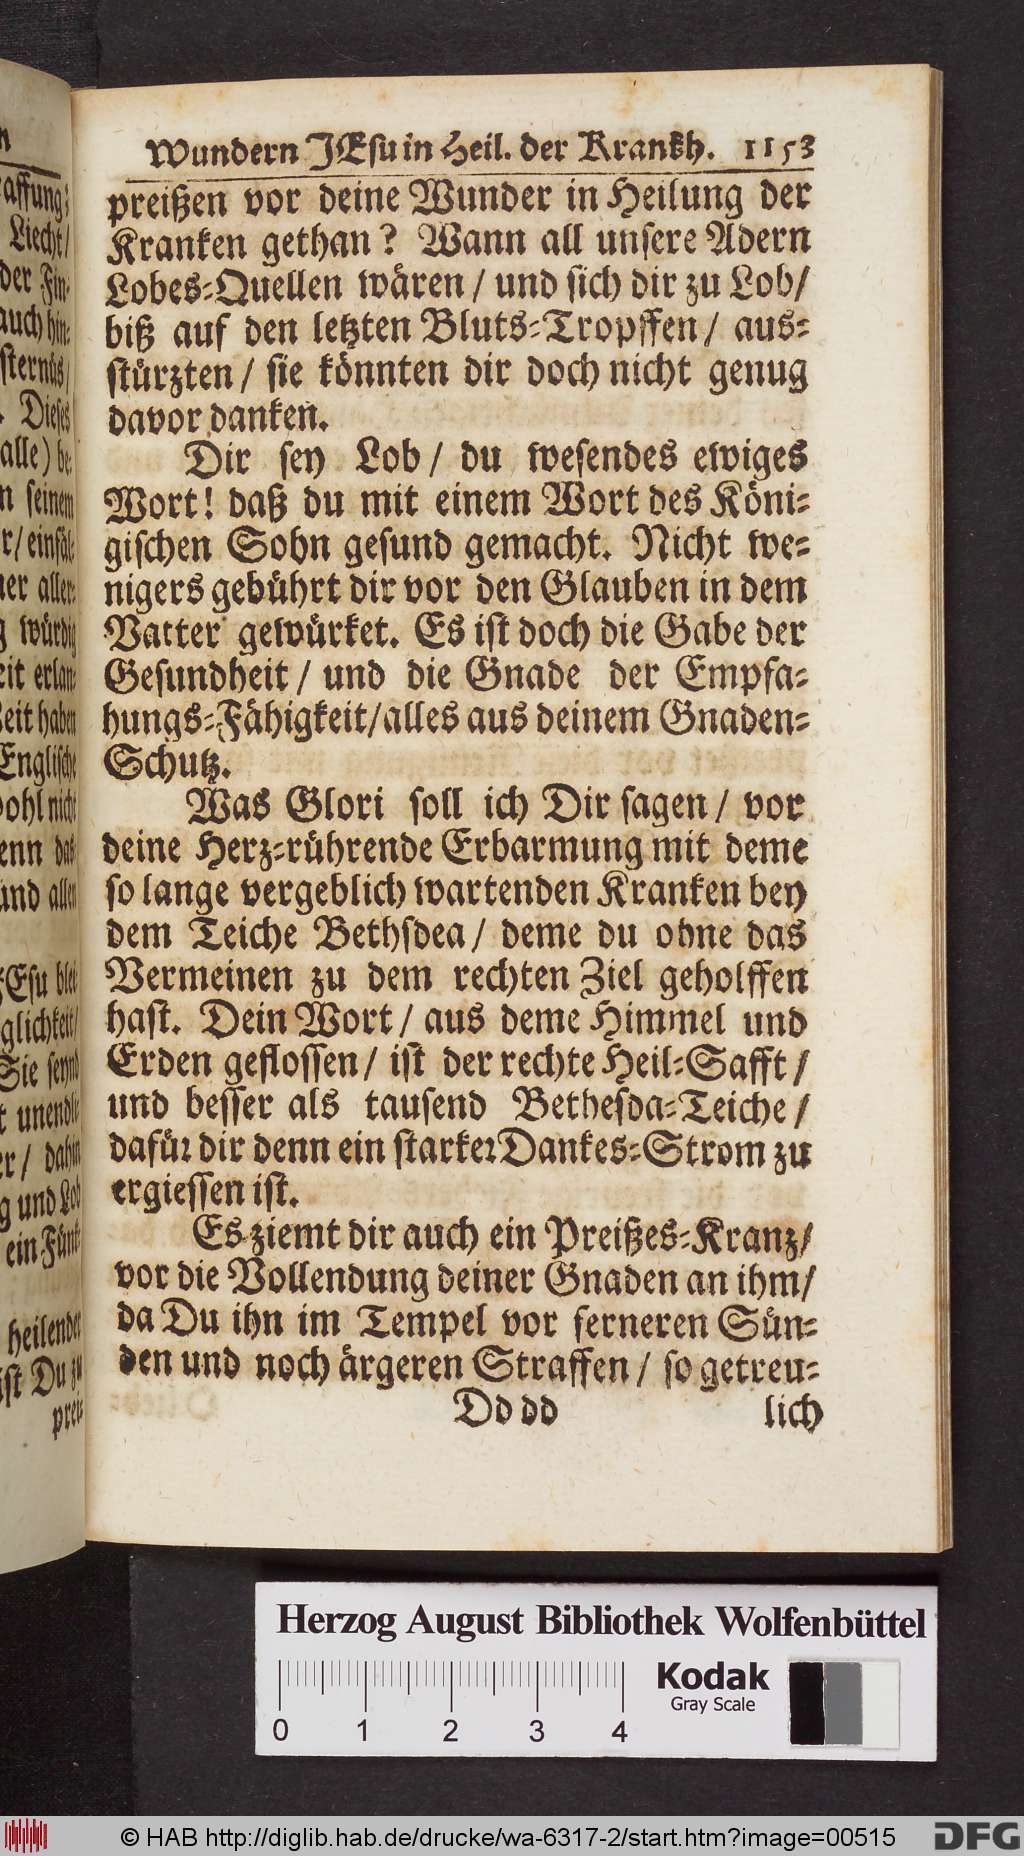 Wundern JEsu in Heil. der Krankh. 1153
preißen vor deine Wunder in Heilung der
Kranken gethan? Wann all unsere Adern
Lobes-Quellen wären / und sich dir zu Lob /
biß auf den letzten Bluts-Tropffen / aus-
stürzten / sie könnten dir doch nicht genug
davor danken.
Dir sey Lob / du wesendes ewiges
Wort! daß du mit einem Wort des Köni-
gischen Sohn gesund gemacht. Nicht we-
nigers gebührt dir vor den Glauben in dem
Vatter gewürket. Es ist doch die Gabe der
Gesundheit / und die Gnade der Empfa-
hungs-Fähigkeit / alles aus deinem Gnaden-
Schutz.
Was Glori soll ich Dir sagen / vor
deine Herz-rührende Erbarmung mit deme
so lange vergeblich wartenden Kranken bey
dem Teiche Bethsdea / deme du ohne das
Vermeinen zu dem rechten Ziel geholffen
hast. Dein Wort / aus deme Himmel und
Erden geflossen / ist der rechte Heil-Safft /
und besser als tausend Bethesda-Teiche /
dafür dir denn ein starker Dankes-Strom zu
ergiessen ist.
Es ziemt dir auch ein Preißes-Kranz /
vor die Vollendung deiner Gnaden an ihm /
da Du ihn im Tempel vor ferneren Sün-
den und noch ärgeren Straffen / so getreu-
Dd dd lich
Liecht /
der Fin-
auch hin-
Dieses
alle) be-
n seinem
würdig
Englische
und allen
JEsu blei-
Sie seynd
unendli-
und Lob
ein Fünk-
heilender
ist Du zu
prei-
Herzog August Bibliothek Wolfenbüttel
Kodak
Gray Scale
0 1 2 3 4
© HAB http://diglib.hab.de/drucke/wa-6317-2/start.htm?image=00515
DFG